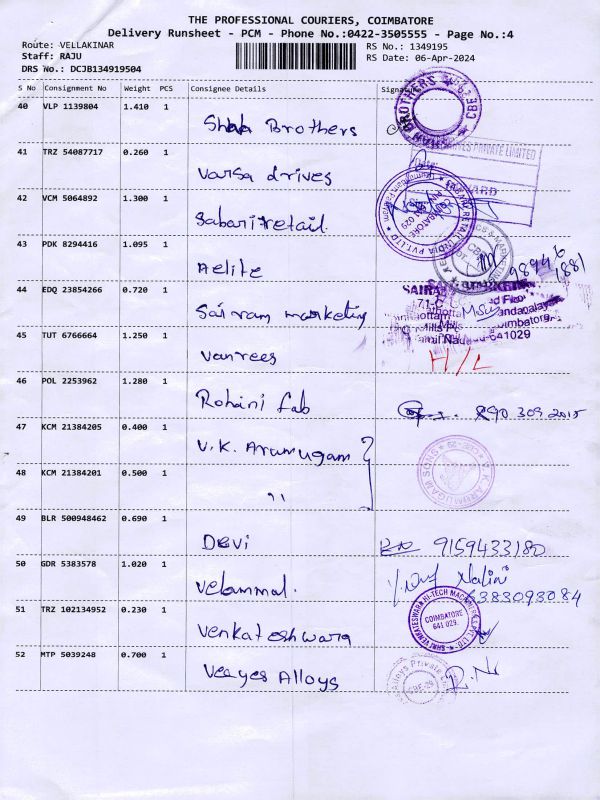 THE PROFESSIONAL COURIERS, COIMBATORE
Delivery Runsheet - PCM - Phone No.:0422-3505555 - Page No.:4
Route: VELLAKINAR
RS No.: 1349195
Staff: RAJU
RS Date: 06-Apr-2024
DRS No.: DCJB134919504
S No Consignment No Weight PCS Consignee Details Signature
40 VLP 1139804 1.410 1
Shah Brothers
BROTHERS
41 TRZ 54087717 0.260 1
PRIVATE LIMITED
Varsa drives
42 VCM 5064892 1.300 1
SABARI RETAIL INDIA PVT LTD
COIMBATORE
641 029
Sabari retail
43 PDK 8294416 1.095 1
Aelite
98946
1881
44 EDQ 23854266 0.720 1
SAIRAM
Coimbatore
641029
Sairam marketing
45 TUT 6766664 1.250 1
Vanrees
H/L
46 POL 2253962 1.280 1
Rohini fab
890 309 2015
47 KCM 21384205 0.400 1
V.K. Arumugam
V.K. ARUMUGAM SONS
48 KCM 21384201 0.500 1
"
49 BLR 500948462 0.690 1
Devi
9159433180
50 GDR 5383578 1.020 1
Velammal.
Nalini
6383093084
51 TRZ 102134952 0.230 1
SHRI VENKATESHWARA HI-TECH MACHINERY (P) LTD.
COIMBATORE
641 029.
Venkateshwara
52 MTP 5039248 0.700 1
Veeyes Alloys
Alloys Private
CBE-29